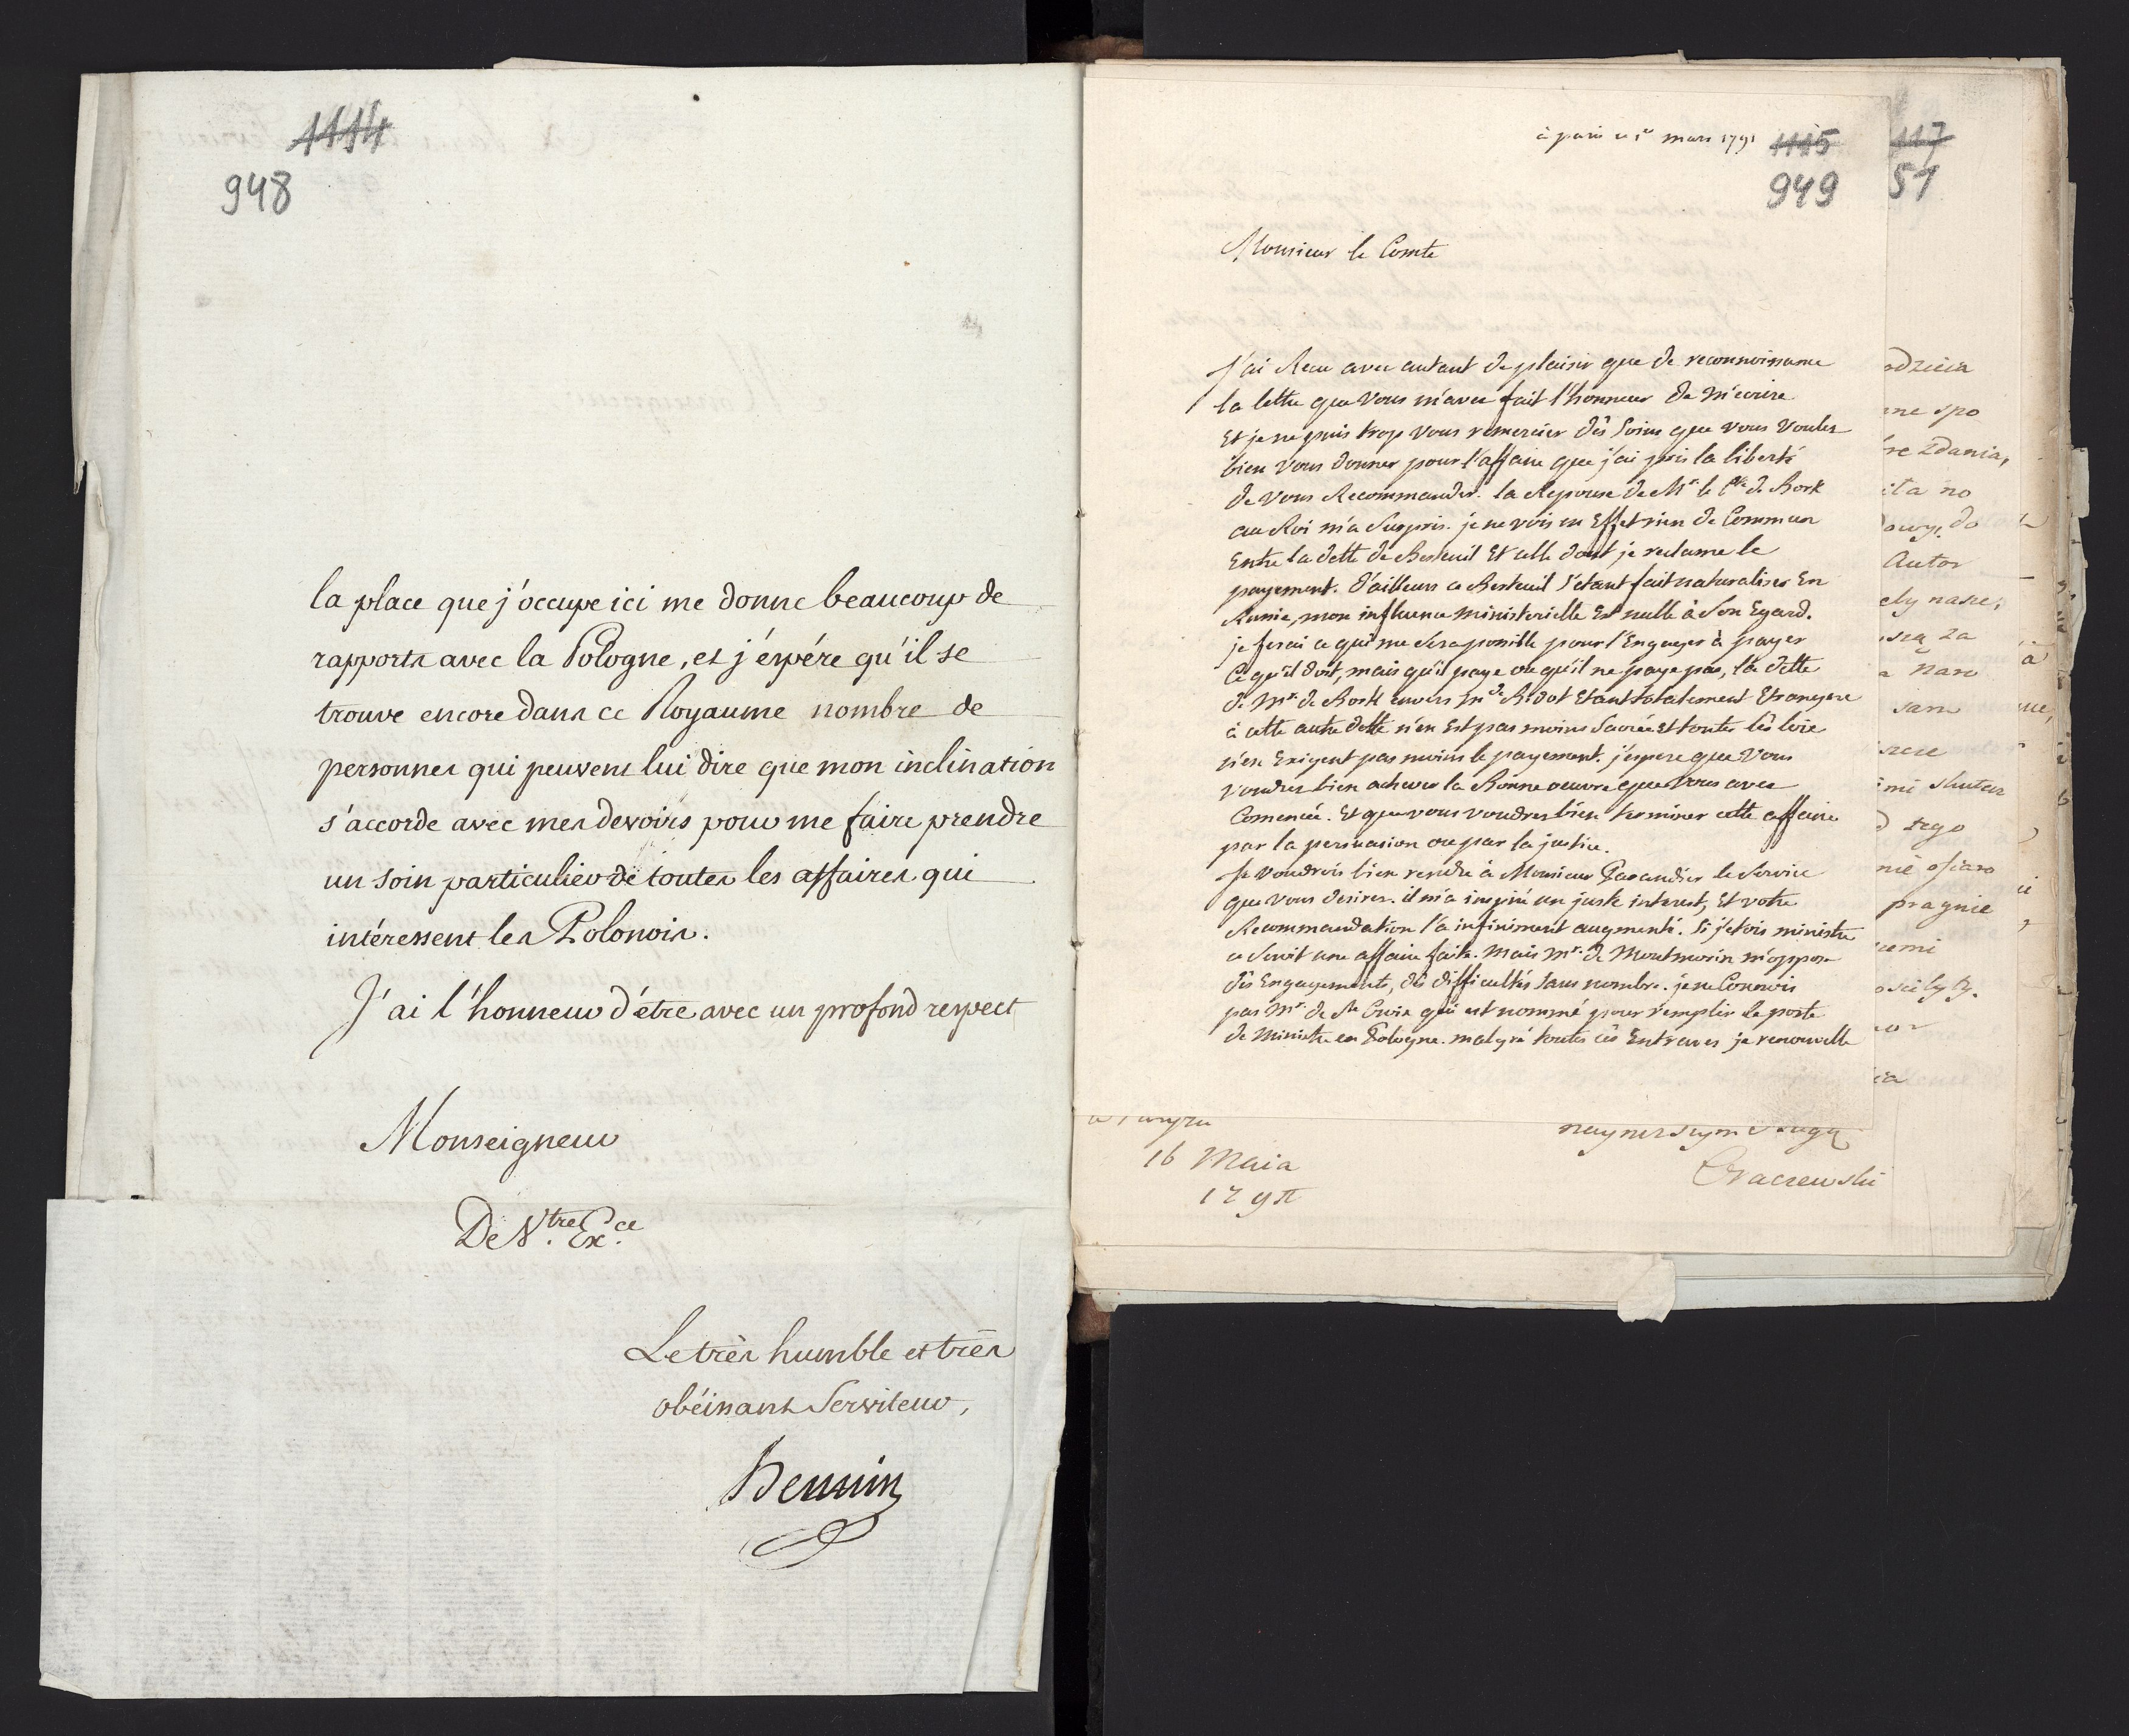 1114
948
la place que j'occupe ici me donne beaucoup de
rapports avec la Pologne, et j'éspére qu'il se
trouve encore dans ce Royaume nombre de
personnes qui peuvent lui dire que mon inclination
s'accorde avec mes devoirs pour me faire prendre
un soin particulier de toutes les affaires qui
intéressent les Polonois.
J'ai l'honneur d'étre avec un profond respect
Monseigneur
De V.tre Ex.ce
Le très humble et très
obéissant Serviteur,
Hennin
à paris ce 1er mars 1791
1115
949
Monsieur le Comte
J'ai Recu avec autant de plaisir que de reconnoissance
la lettre que Vous m'avez fait l'honneur de m'ecrire
Et je ne puis trop vous remercier dès Soins que vous voulez
bien vous donner pour l'affaire que j'ai pris la liberté
de vous Recommander. la Reponse de Mr le Cte de Bork
au Roi m'a Surpris. je ne vois en Effet rien de Commun
Entre la dette de Berteuil Et celle dont je reclame le
payement. d'ailleurs ce Berteuil s'étant fait naturaliser En
Russie, mon influence ministerielle Est nulle à Son Egard.
je ferai ce qui me Sera possible pour l'Engager à payer
Ce qu'il doit, mais qu'il paye ou qu'il ne paye pas, la dette
de Mr. de Bork envers Mde Ridot Etant totalement Etrangere
à cette autre dette n'en Est pas moins Sacrée et toutes lès loix
n'en Exigent pas moins le payement. j'espere que Vous
voudrez bien achever la Bonne oeuvre que Vous avez
Comencée. Et que vous voudrez bien terminer cette affaire
par la persuasion ou par la justice.
Je voudrois bien rendre à Monsieur Parandier le Service
que vous desirez. il m'a inspiré un juste interest, Et votre
Recommandation l'a infiniment augmenté. Si j'etois ministre
ce Seroit une affaire faite. Mais Mr. de Montmorin m'oppose
dès Engagements, dès difficultés sans nombre. je ne Connois
pas Mr. de Ste Croix qui est nommé pour remplir le poste
de Ministre en Pologne. malgré toutes cès Entraves je renouvelle
117
51
odzicia
ne spo
re zdania,
ita no
do
Autor
ely nasze,
sią za
a Naro
sam
szcze
imi skutez
d tego
nie ofiaro
pragnie
emi
or
ia
16 Maia